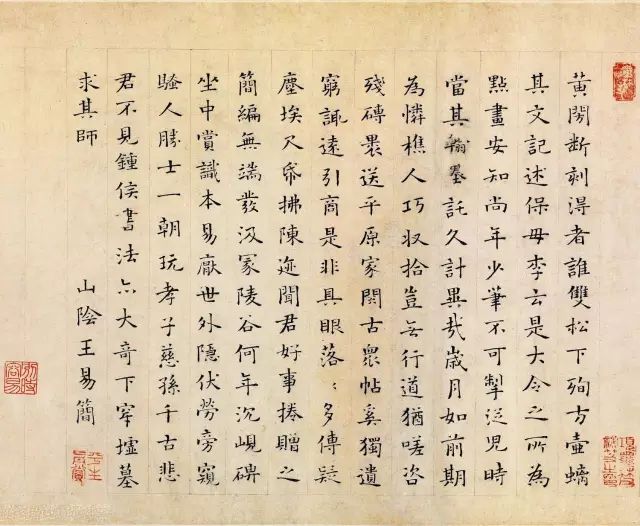 黃閍断刻得者誰雙松下殉方壷螭
其文記述保母李云是大令之所為
點畫安知尚年少筆不可掣從兒時
當其翰墨託久計異哉歲月如前期
為憐樵人巧収拾豈無行道猶嗟咨
殘磚裹送平原家閱古衆帖奚獨遺
窮諏遠引商是非具眼落〻多傳疑
塵埃尺帋拂陳迹聞君好事捲贈之
簡編無端發汲冢陵谷何年沉峴碑
坐中賞識本易厭世外隱伏勞旁窺
騷人勝士一朝玩孝子慈孫千古悲
君不見鍾侯書法亦大奇下穿墟墓
求其師
山陰王易簡